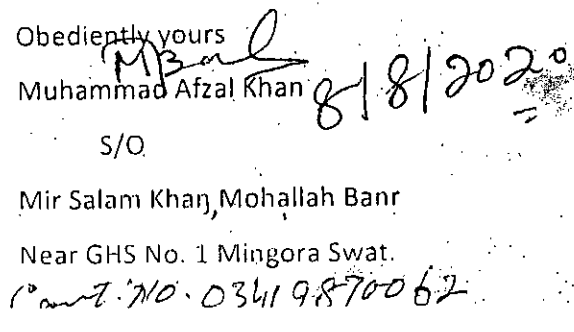 Obediently yours
Muhammad Afzal Khan 8/8/2020
S/O
Mir Salam Khan, Mohallah Banr
Near GHS No. 1 Mingora Swat.
No. 03419870062